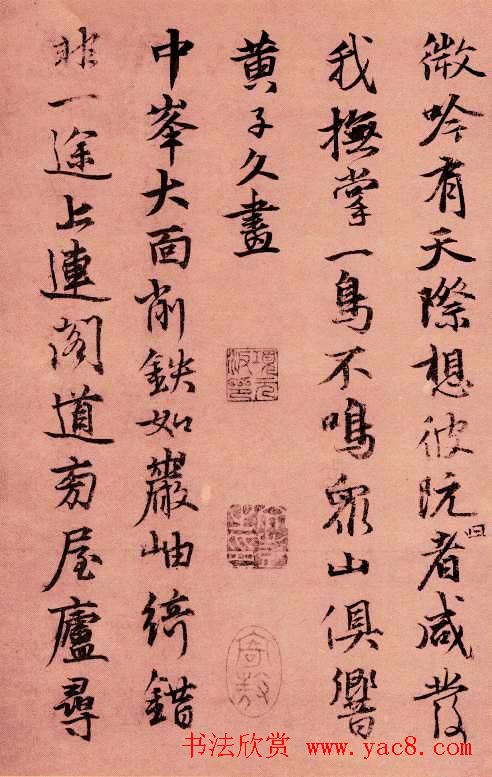 微吟有天際想彼阮者咸發
我撫掌一鳥不鳴眾山俱響
黃子久畫
中峯大面削鉄如巖岫綺錯
非一途上連閣道旁屋廬尋
书法欣赏 www.yac8.com